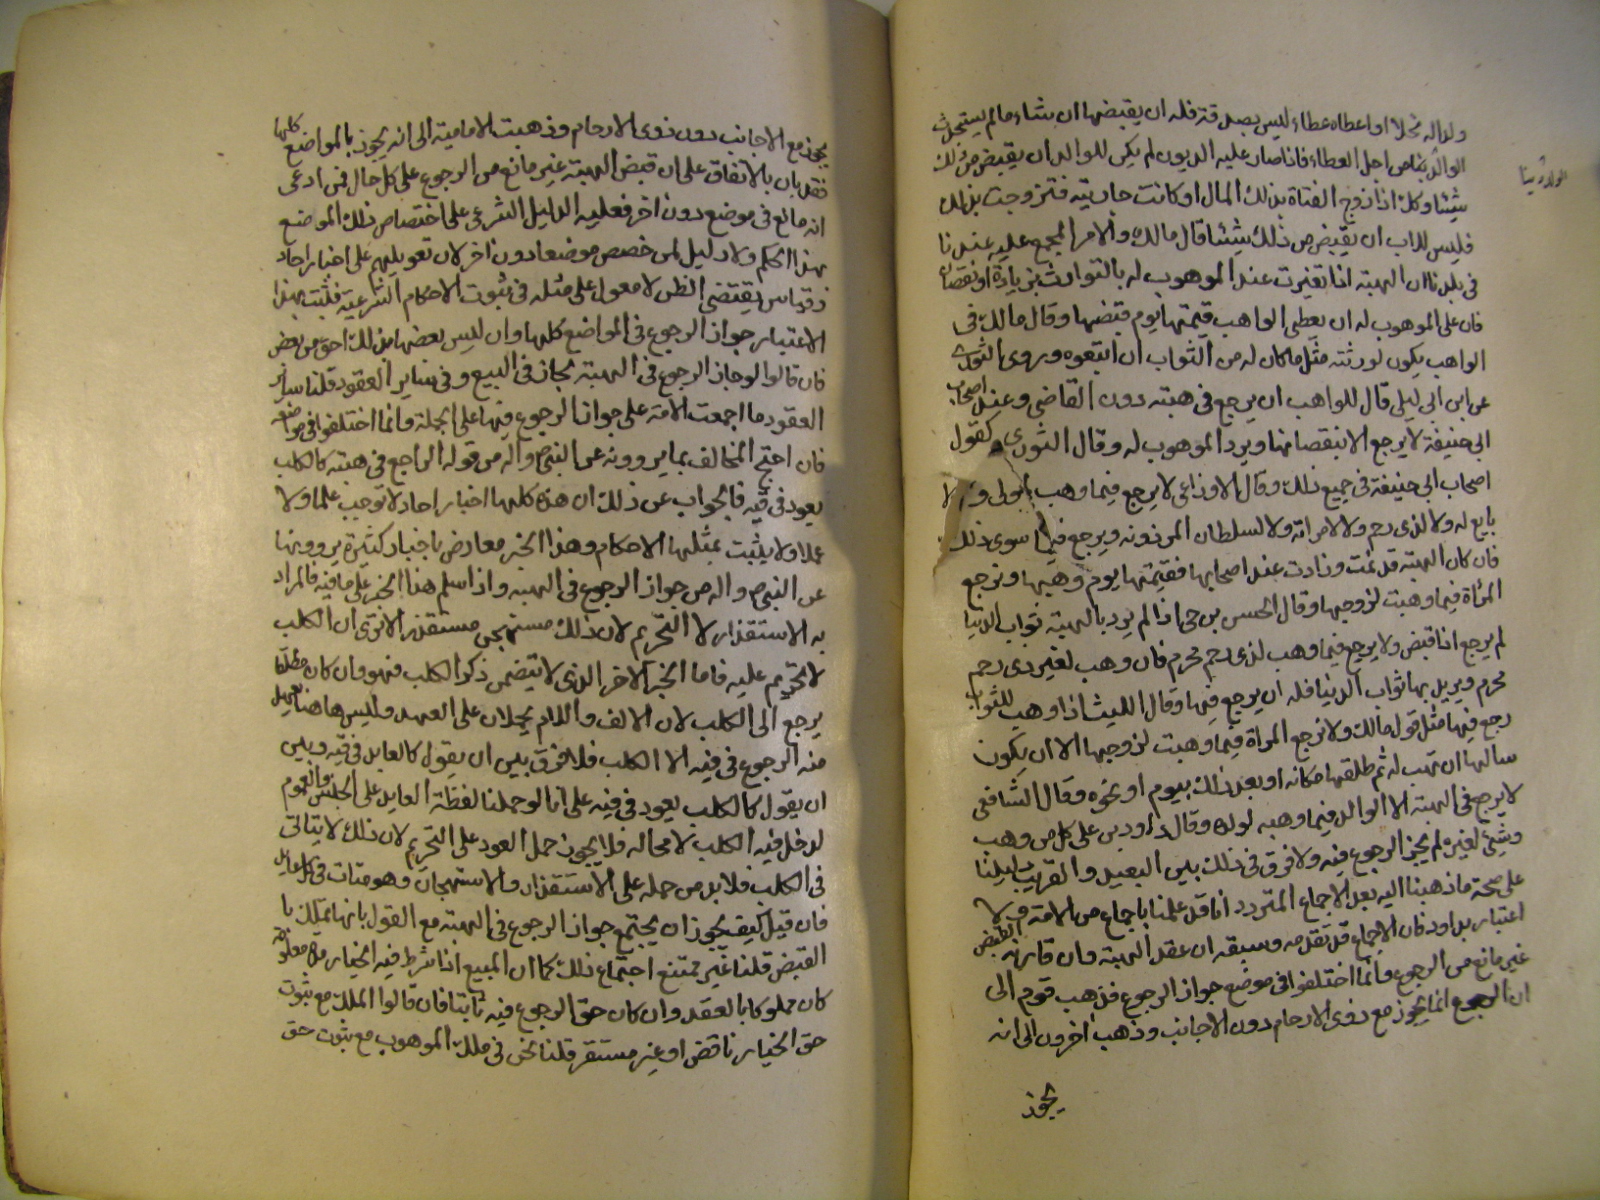 ولده له نحلا او اعطاه عطاء ليس بصدقة فله ان يقبضها ان شاء ما لم يستحدث
الوالد دينا من اجل العطاء فاذا صار عليه الديون لم يكن للوالد ان يقبض من ذلك
الولد دينا
شيئا وكذا اذا زوج الفتاة بذلك المال او كانت جارية فتزوجت بذلك
فليس للاب ان يقبض من ذلك شيئا قال مالك والامر المجمع عليه عندنا
في بلدنا ان الهبة اذا تغيرت عند الموهوب له بالثواب بزيادة او نقصان
فان على الموهوب له ان يعطي الواهب قيمتها يوم قبضها وقال مالك في
الواهب يكون لورثته مثل ما كان له من الثواب ان اتبعوه وروى الثوري
عن ابن ابي ليلى قال للواهب ان يرجع في هبته دون القاضي وعند اصحاب
ابي حنيفة لا يرجع الا بنقصانها ويرد الموهوب له وقال الثوري كقول
اصحاب ابي حنيفة في جميع ذلك وقال الاوزاعي لا يرجع فيما وهب لمولى ولا
تابع له ولا لذي رحم ولا لامراته ولا لسلطان المن دونه ويرجع فيما سوى ذلك
فان كان الهبة قد نمت وزادت عند اصحابها فقيمتها يوم وهبها وترجع
المراة فيما وهبت لزوجها وقال الحسن بن حي اذا لم يرد بالهبة ثواب الدنيا
لم يرجع اذا قبض ولا يرجع فيما وهب لذي رحم محرم فان وهب لغير ذي رحم
محرم ويريد بها ثواب الدنيا فله ان يرجع فيها وقال الليث اذا وهب للثواب
رجع فيها مثل قول مالك ولا ترجع المراة فيما وهبت لزوجها الا ان يكون
سالها ان تهب له ثم طلقها مكانه او بعد ذلك بيوم او نحوه وقال الشافعي
لا يرجع في الهبة الا الوالد فيما وهبه لولده وقال داود بن علي كل من وهب
وشئ لغيره لم يجز الرجوع فيه ولا فرق في ذلك بين البعيد والقريب دليلنا
على صحة ما ذهبنا اليه بعد الاجماع المتردد انا قد علمنا باجماع من الامة لا
اعتبار بداود فان الاجماع قد تقدمه وسبقه ان عقد الهبة وان قارنه القبض
غير مانع من الرجوع وانما اختلفوا في موضع جواز الرجوع فذهب قوم الى
ان الرجوع انما يجوز مع ذوى الارحام دون الاجانب وذهب اخرون الى انه
يجوز
يجوز مع الاجانب دون ذوى الارحام وذهبت الامامية الى انه يجوز بالمواضع كلها
فقد بان بالاتفاق على ان قبض الهبة غير مانع من الرجوع على كل حال فمن ادعى
انه مانع في موضع دون اخر فعليه الدليل الشرعي على اختصاص ذلك الموضع
بهذا الحكم ولا دليل لمن خصص موضعا دون اخر لان تعويلهم على اخبار احاد
وقياس يقتضي الظن لا معول على مثله في ثبوت الاحكام الشرعية فثبت بهذا
الاعتبار جواز الرجوع في المواضع كلها وان ليس بعضها بذلك احق من بعض
فان قالوا لو جاز الرجوع في الهبة لجاز في البيع وفي ساير العقود قلنا ساير
العقود ما اجمعت الامة على جواز الرجوع فيها على الجملة وانما اختلفوا في مواضع
فان احتج المخالف بما يروونه عن النبي ص واله من قوله الراجع في هبته كالكلب
يعود في قيه فالجواب عن ذلك ان هذه كلها اخبار احاد لا توجب علما ولا
عملا ولا يثبت بمثلها الاحكام وهذا الخبر معارض باخبار كثيرة يروونها
عن النبي ص واله من جواز الرجوع في الهبة واذا سلم هذا الخبر على ما فيه فالمراد
به الاستقذار لا التحريم لان ذلك مستهجن مستقذر الا ترى ان الكلب
لا تحريم عليه فاما الخبر الاخر الذي لا يتضمن ذكر الكلب فهو وان كان مطلقا
يرجع الى الكلب لان الالف واللام يحملان على العهد وليس هاهنا نعهد
منه الرجوع في قيه الا الكلب فلا فرق بين ان يقول كالعايد في قيه وبين
ان يقول كالكلب يعود في قيه على انا لو حملنا لفظة العايد على الجنس والعموم
لدخل فيه الكلب لا محاله فلا يجوز حمل العود على التحريم لان ذلك لا يتاتى
في الكلب فلا بد من حمله على الاستقذار والاستهجان وهو متات في كل عايد
فان قيل كيف يجوز ان يجتمع جواز الرجوع في الهبة مع القول بانها تملك با
القبض قلنا غير ممتنع اجتماع ذلك كما ان المبيع اذا شرط فيه الخيار مدة معلومة
كان مملوكا بالعقد وان كان حق الرجوع فيه ثابتا فان قالوا الملك مع ثبوت
حق الخيار ناقض او غير مستقر قلنا نحن في ملك الموهوب مع ثبوت حق